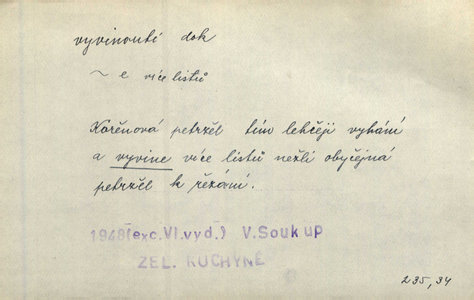 vyvinouti dok
~ e více listů
Kořenová petržel tím lehčeji vyhání
a vyvine více listů nežli obyčejná
petržel k řezání.
1948(exc.VI.vyd.) V.Soukup
ZEL. KUCHYNĚ
235,34